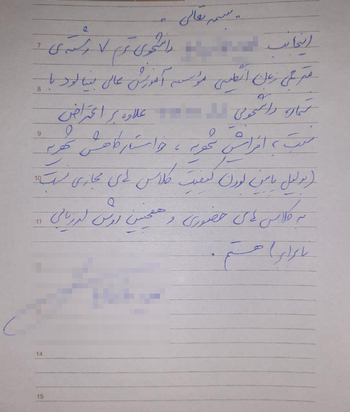 بسمه تعالی
اینجانب دانشجوی ترم ۷ رشته‌ی
مترجمی زبان انگلیسی مؤسسه آموزش عالی بینالود با
شماره دانشجویی علاوه بر اعتراض
نسبت به افزایش شهریه ، خواستار کاهش شهریه
(بدلیل پایین بودن کیفیت کلاس های مجازی نسبت
به کلاس های حضوری و همچنین روش ارزیابی
نابرابر) هستم .
7
8
9
10
11
14
15